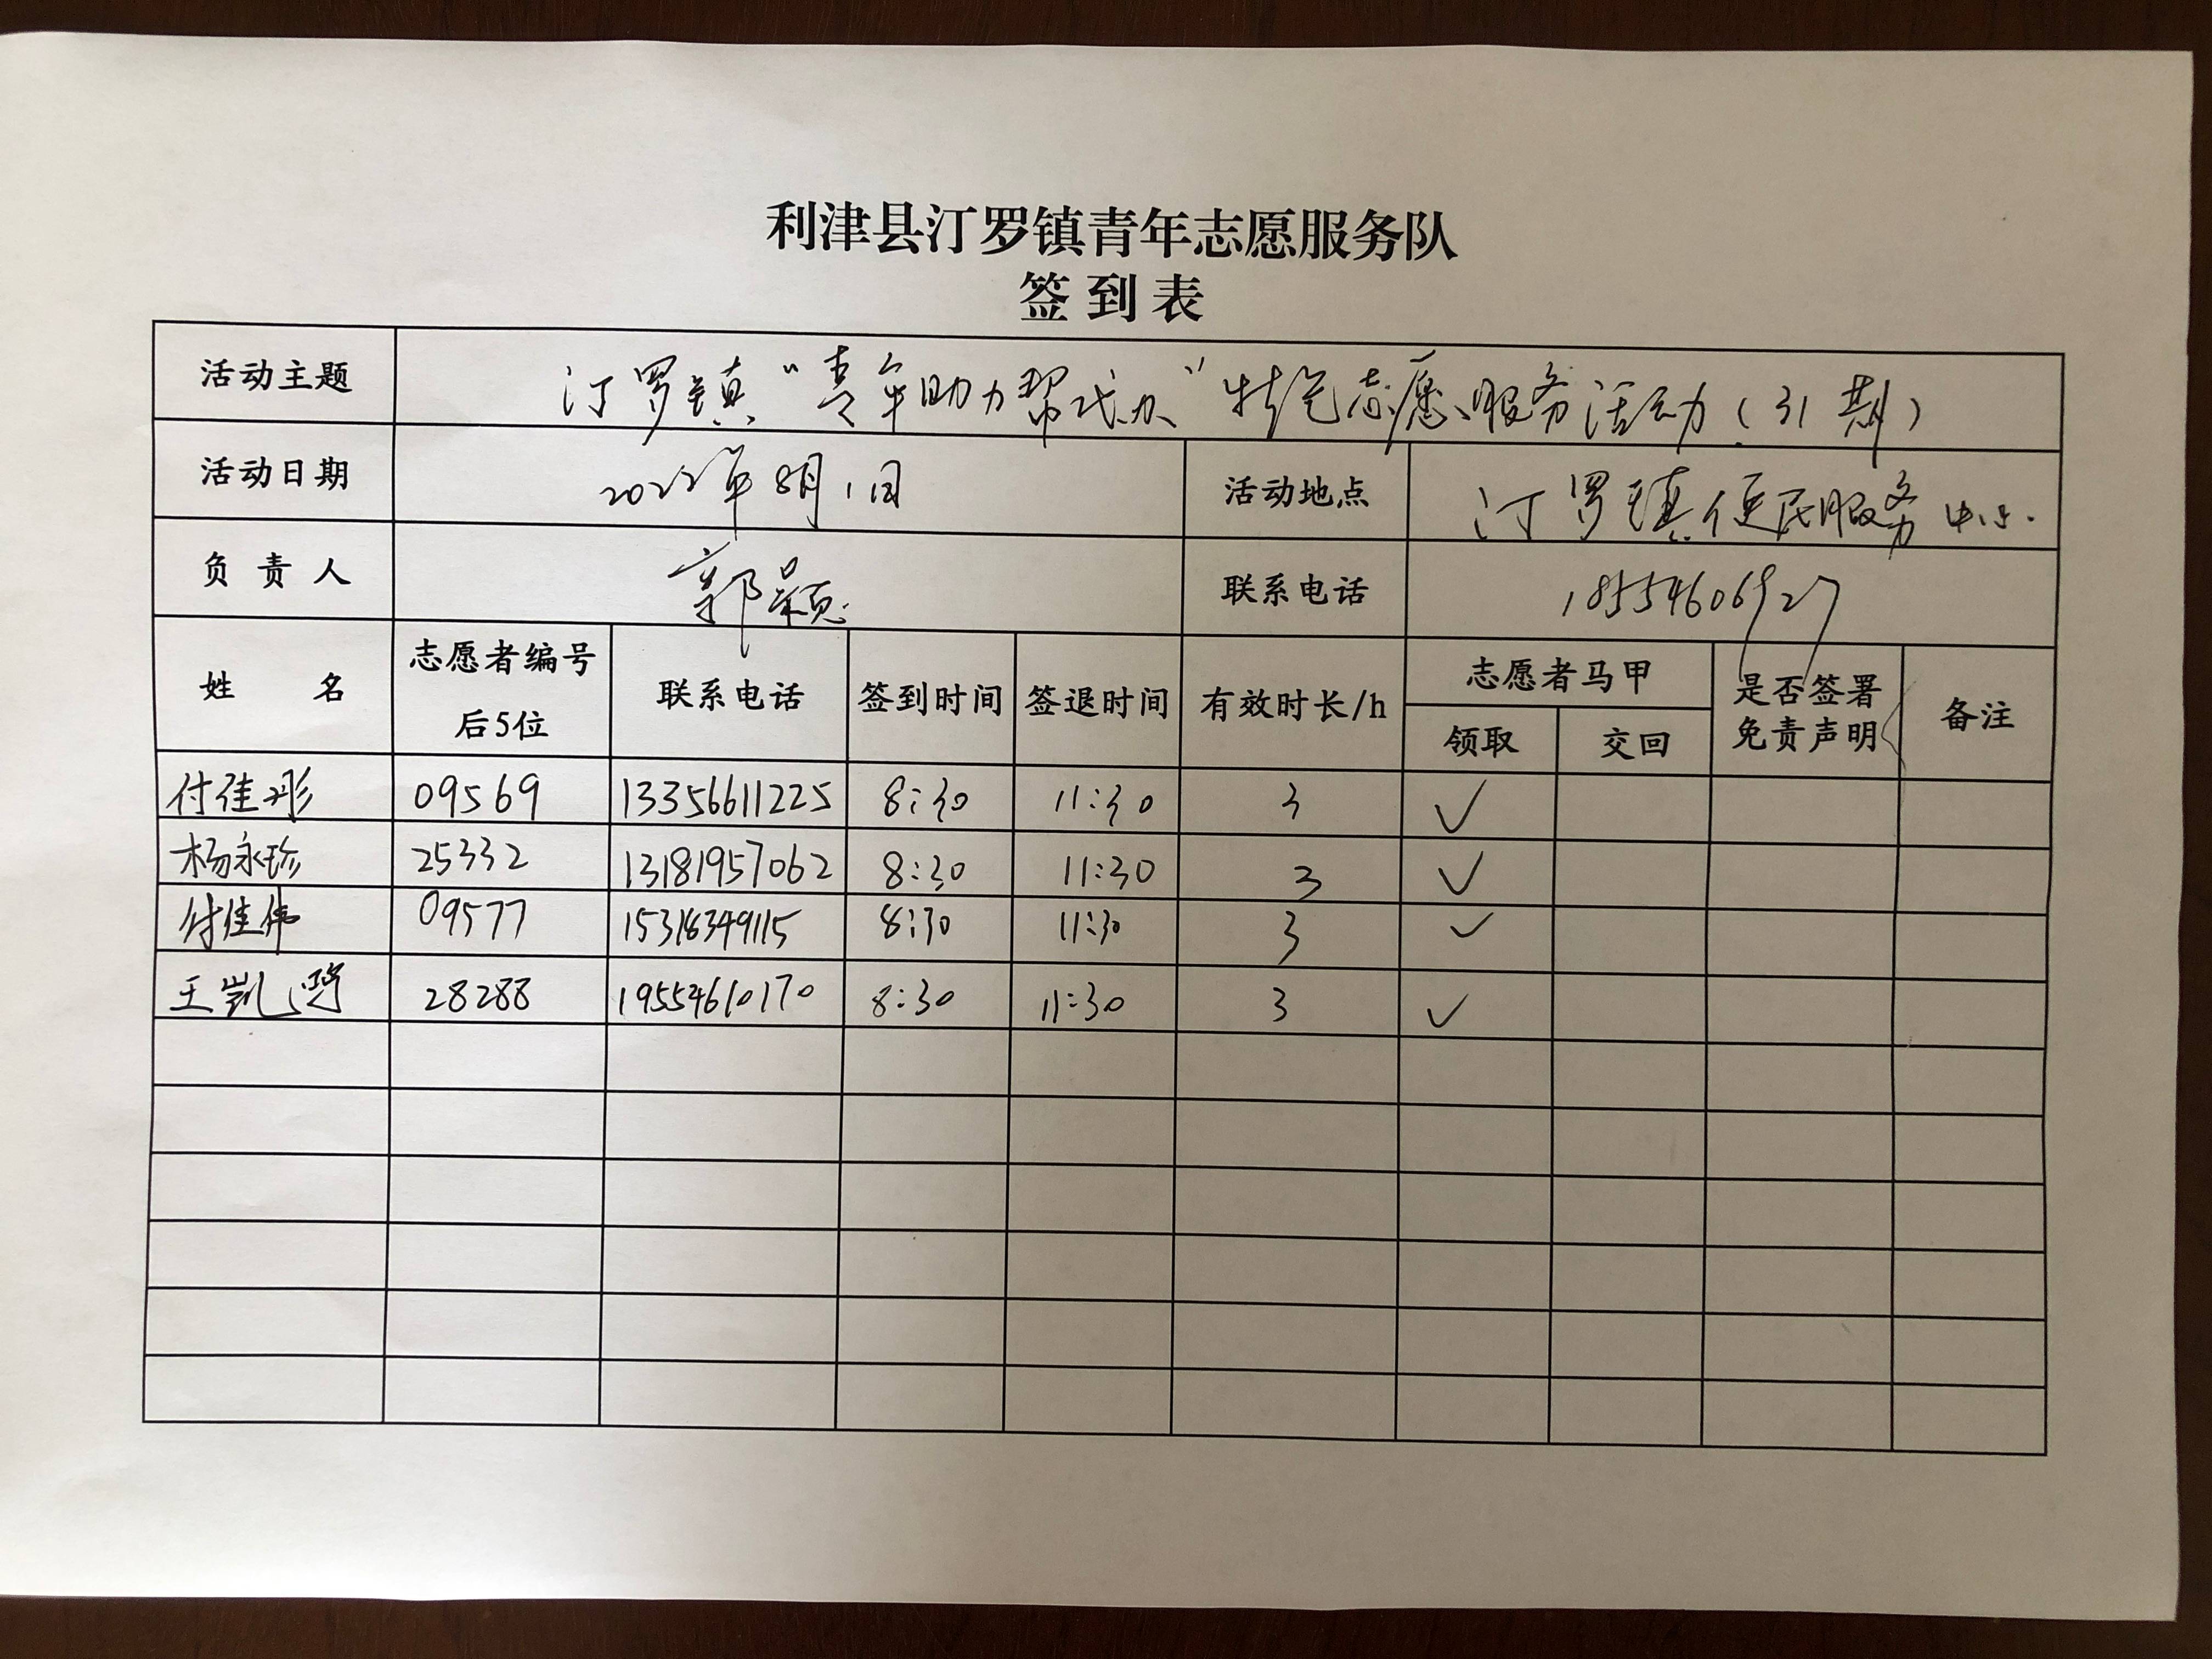 利津县汀罗镇青年志愿服务队
签到表
活动主题 汀罗镇“青年助力帮代办”特色志愿服务活动（31期）
活动日期 2022年8月1日 活动地点 汀罗镇便民服务中心
负责人 郭颖 联系电话 18554606927
姓名 志愿者编号后5位 联系电话 签到时间 签退时间 有效时长/h 志愿者马甲 领取 交回 是否签署免责声明 备注
付佳彤 09569 13356611225 8:30 11:30 3 ✓
杨永珍 25332 13181957062 8:30 11:30 3 ✓
付佳伟 09577 15318349115 8:30 11:30 3 ✓
王凯 28288 19554610170 8:30 11:30 3 ✓